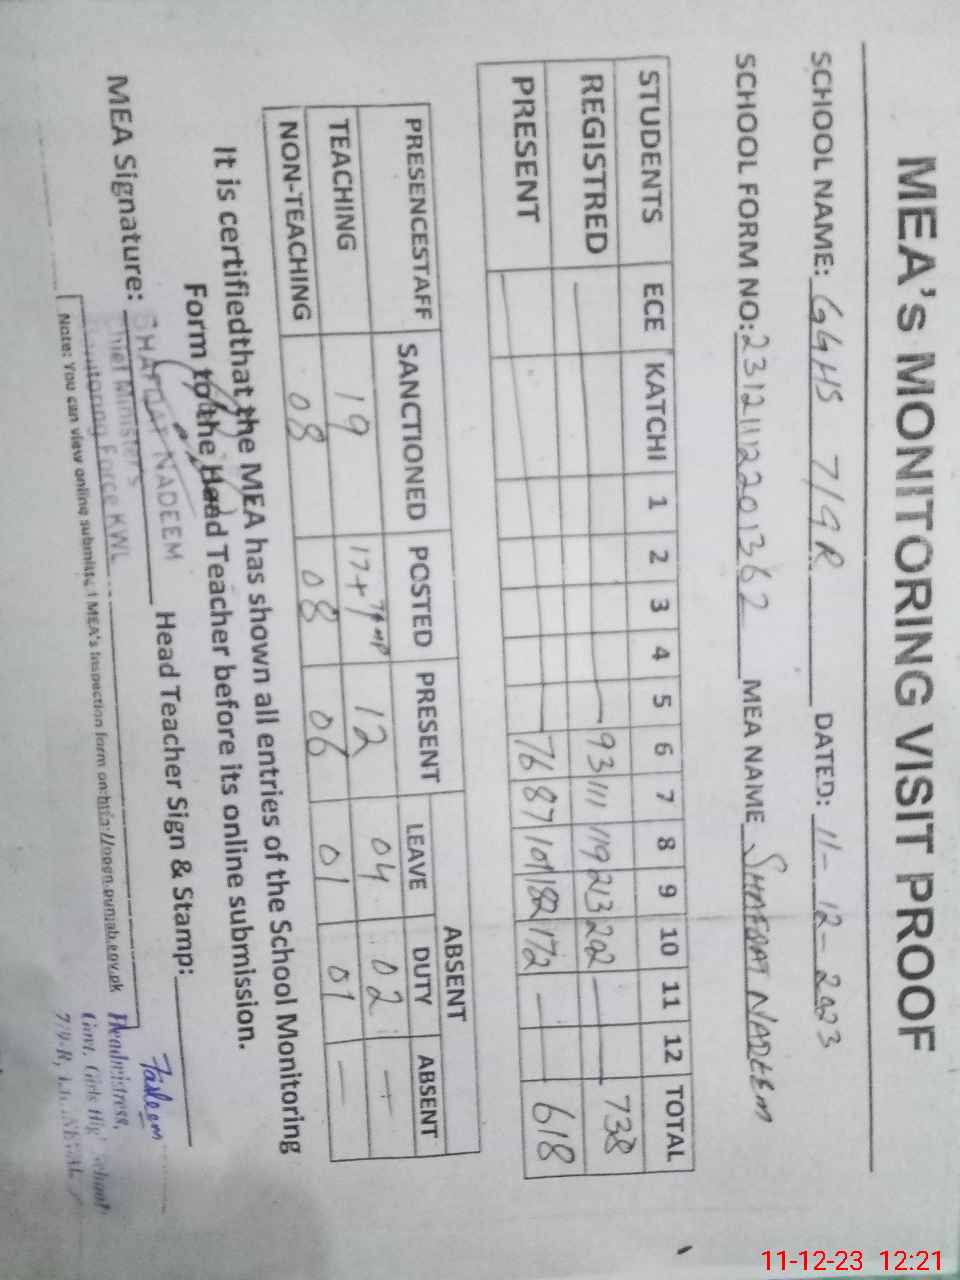 MEA's MONITORING VISIT PROOF
SCHOOL NAME: GGHS 7/9R DATED: 11-12-2023
SCHOOL FORM NO: 23121112201362 MEA NAME SHAFQAT NADEEM
STUDENTS ECE KATCHI 1 2 3 4 5 6 7 8 9 10 11 12 TOTAL
REGISTRED — — 93 111 119 213 202 — 738
PRESENT 76 87 101 182 172 — 618
PRESENCESTAFF SANCTIONED POSTED PRESENT ABSENT
LEAVE DUTY ABSENT
TEACHING 19 17+ 12 04 02 —
NON-TEACHING 08 08 06 01 01 —
It is certifiedthat the MEA has shown all entries of the School Monitoring
Form to the Head Teacher before its online submission.
MEA Signature: Head Teacher Sign & Stamp:
SHAFQAT NADEEM
Chief Minister's
Monitoring Force KWL
Note: You can view online submitted MEA's Inspection form on:http://open.punjab.gov.pk
Headmistress,
Govt. Girls High School
7/9-R,
11-12-23 12:21